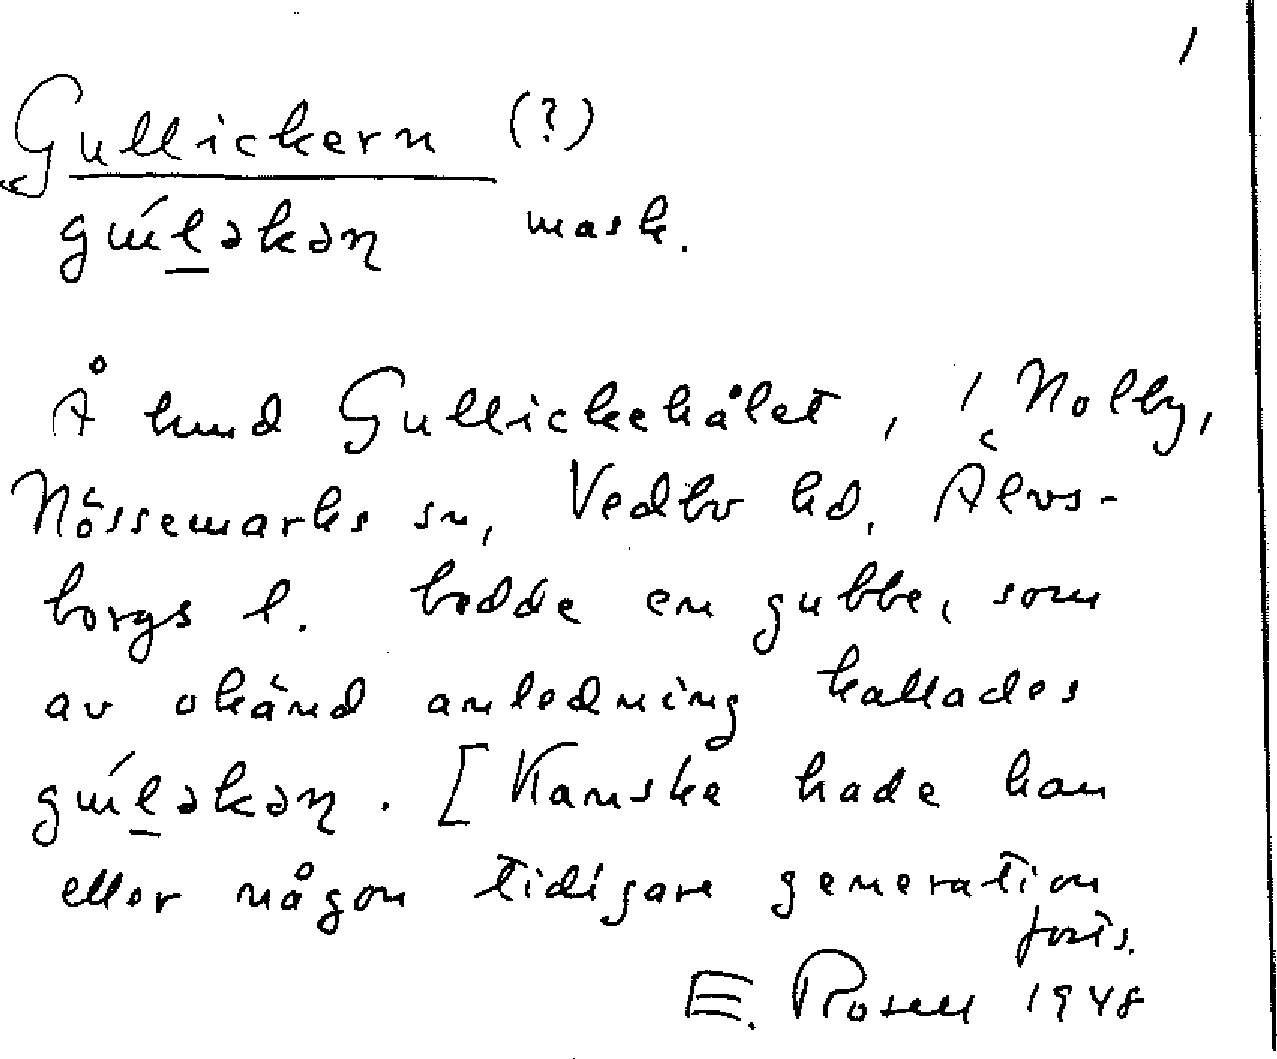 1
Gullickern (?)
gu̇́l̲əkəɳ mask.
Å hmd Gullickekålet, i Nolby,
Nössemarks sn, Vedbo hd, Älvs-
borgs l. bodde en gubbe, som
av okänd anledning kallades
gu̇́l̲əkəɳ. [Kanske hade han
eller någon tidigare generation
forts.
E. Rosell 1948